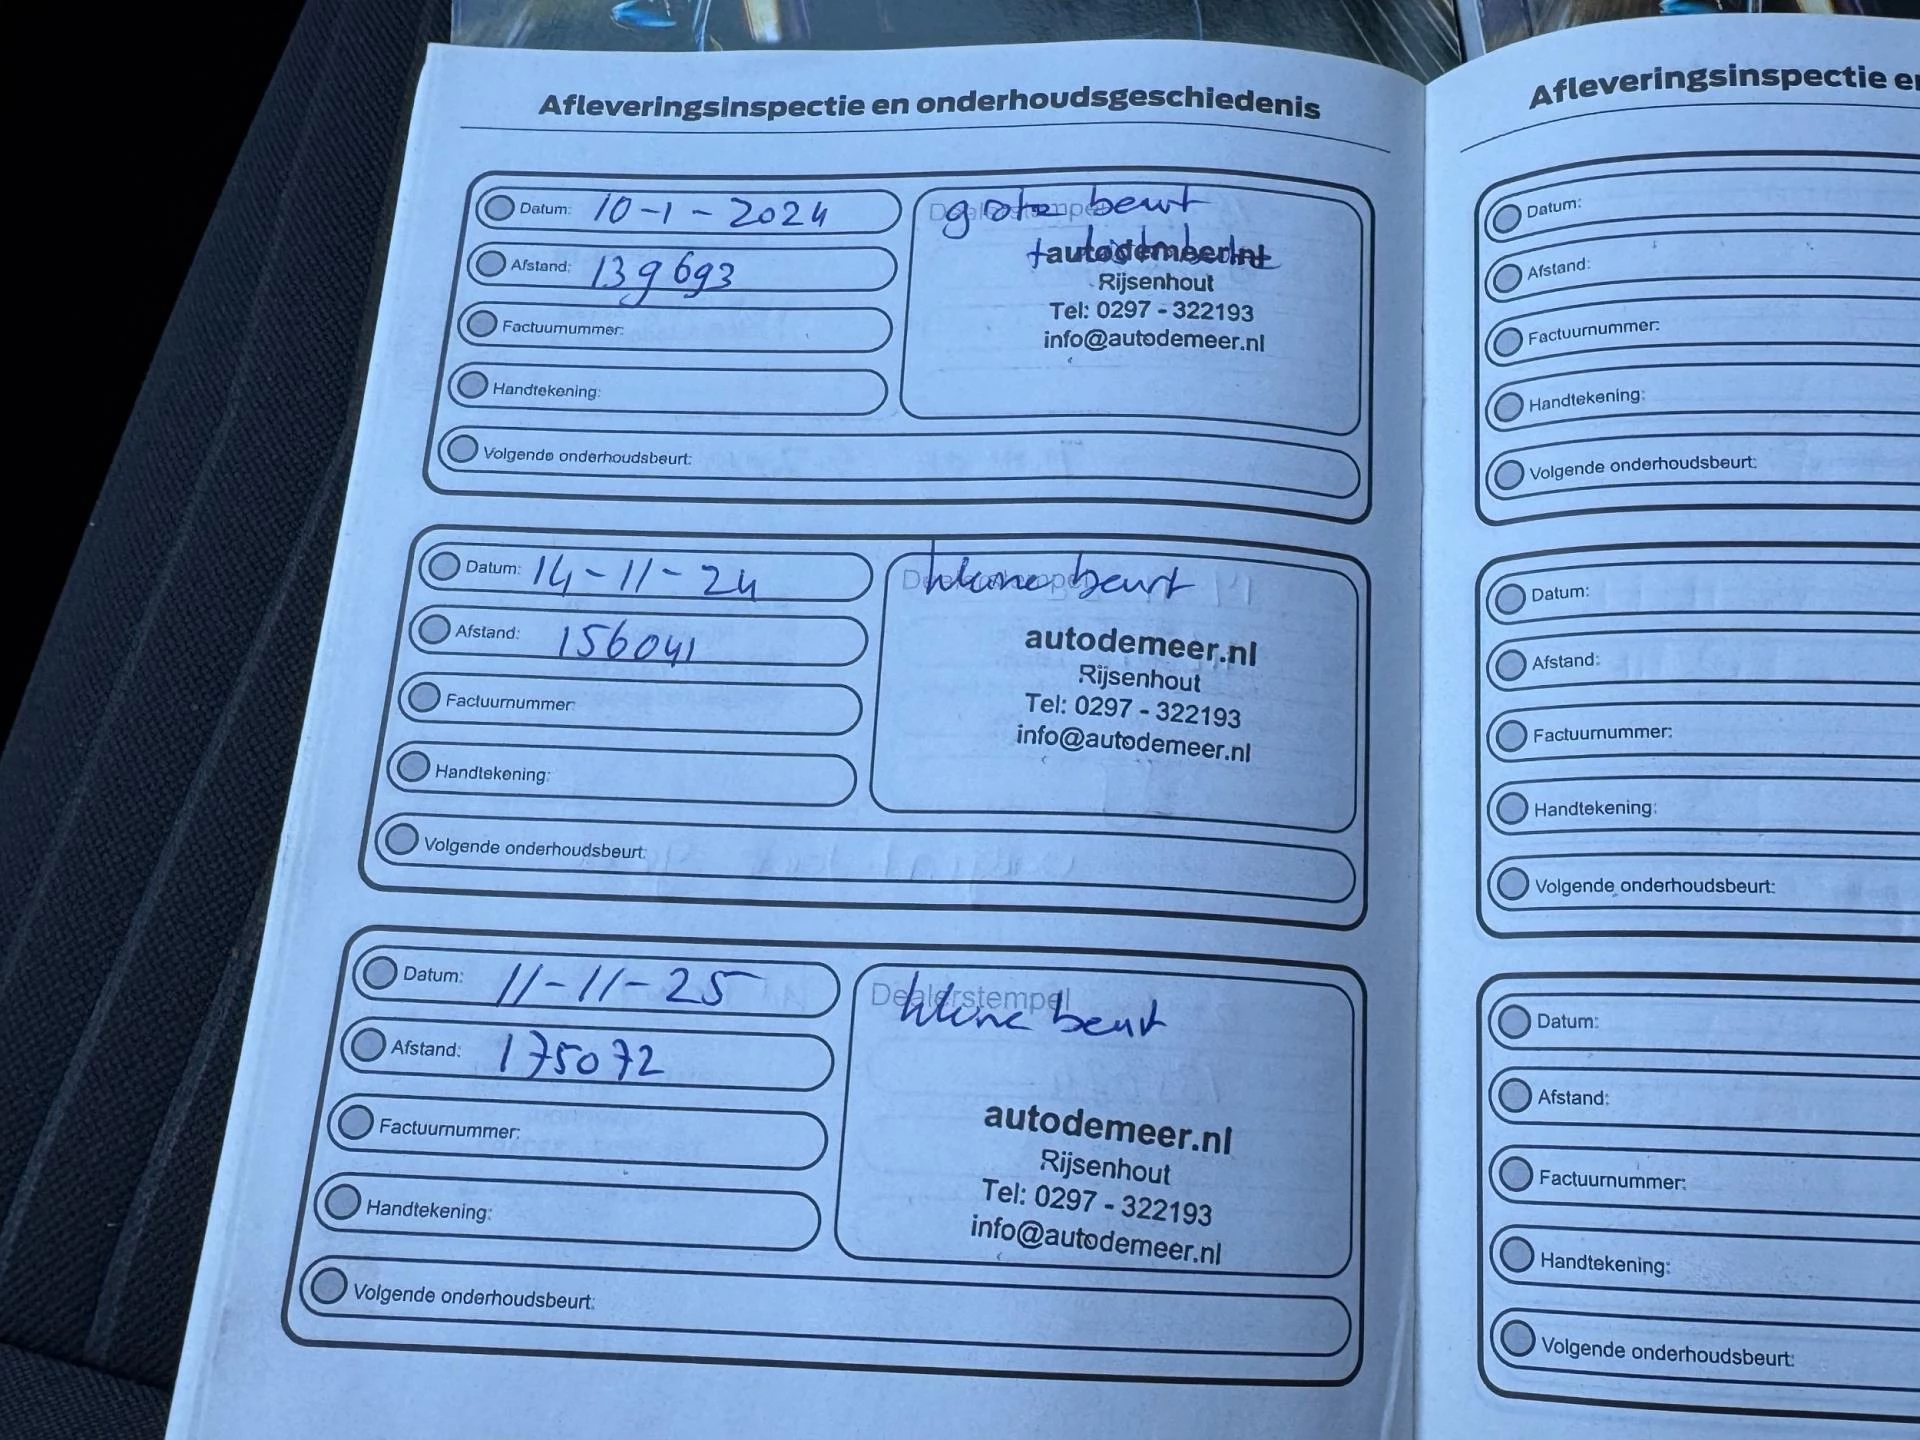 Afleveringsinspectie en onderhoudsgeschiedenis
Datum: 10-1-2024
Afstand: 139693
Factuurnummer:
Handtekening:
Volgende onderhoudsbeurt:
Dealerstempel
grote beurt
+
autodemeer.nl
Rijsenhout
Tel: 0297 - 322193
info@autodemeer.nl
Datum: 14-11-24
Afstand: 156041
Factuurnummer:
Handtekening:
Volgende onderhoudsbeurt:
Dealerstempel
kleine beurt
autodemeer.nl
Rijsenhout
Tel: 0297 - 322193
info@autodemeer.nl
Datum: 11-11-25
Afstand: 175072
Factuurnummer:
Handtekening:
Volgende onderhoudsbeurt:
Dealerstempel
kleine beurt
autodemeer.nl
Rijsenhout
Tel: 0297 - 322193
info@autodemeer.nl
Afleveringsinspectie e
Datum:
Afstand:
Factuurnummer:
Handtekening:
Volgende onderhoudsbeurt:
Datum:
Afstand:
Factuurnummer:
Handtekening:
Volgende onderhoudsbeurt:
Datum:
Afstand:
Factuurnummer:
Handtekening:
Volgende onderhoudsbeurt: